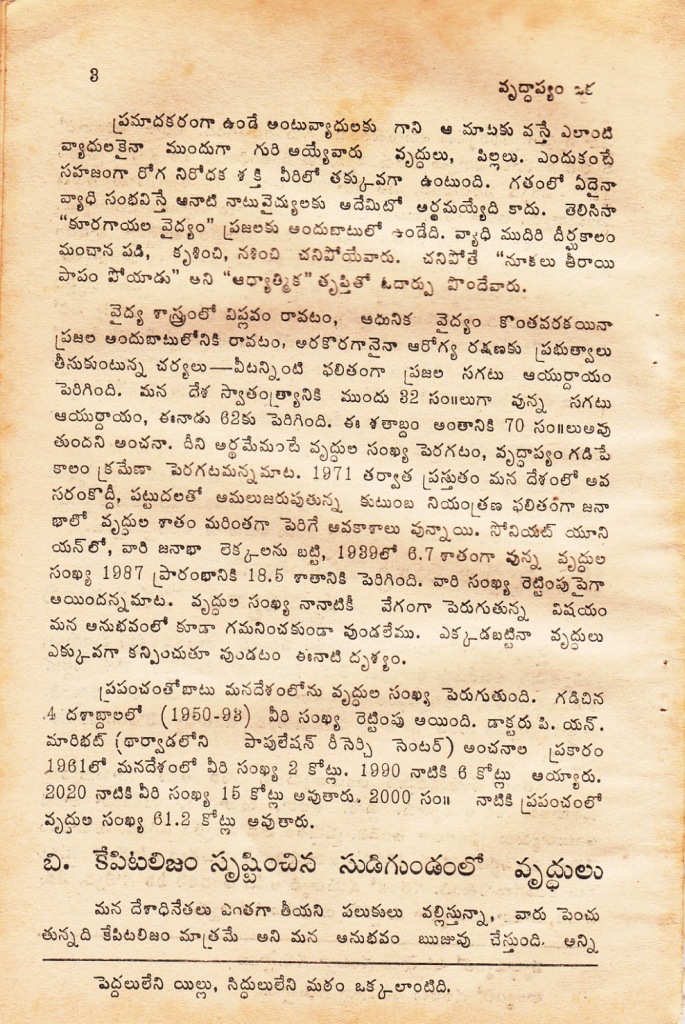 3
వృద్ధాప్యం ఒక
ప్రమాదకరంగా ఉండే అంటువ్యాధులకు గాని ఆ మాటకు వస్తే ఎలాంటి
వ్యాధులకైనా ముందుగా గురి అయ్యేవారు వృద్ధులు, పిల్లలు. ఎందుకంటే
సహజంగా రోగ నిరోధక శక్తి వీరిలో తక్కువగా ఉంటుంది. గతంలో ఏదైనా
వ్యాధి సంభవిస్తే ఆనాటి నాటువైద్యులకు అదేమిటో అర్థమయ్యేది కాదు. తెలిసిసా
“కూరగాయల వైద్యం” ప్రజలకు అందుబాటులో ఉండేది. వ్యాధి ముదిరి దీర్ఘకాలం
మంచాన పడి, కృశించి, నశించి చనిపోయేవారు. చనిపోతే “నూకలు తీరాయి
పాపం పోయాడు” అని “ఆధ్యాత్మిక” తృప్తితో ఓదార్పు పొందేవారు.
వైద్య శాస్త్రంలో విప్లవం రావటం, ఆధునిక వైద్యం కొంతవరకయినా
ప్రజల అందుబాటులోనికి రావటం, అరకొరగానైనా ఆరోగ్య రక్షణకు ప్రభుత్వాలు
తీనుకుంటున్న చర్యలు—వీటన్నింటి ఫలితంగా ప్రజల సగటు ఆయుర్దాయం
పెరిగింది. మన దేశ స్వాతంత్ర్యానికి ముందు 32 సం॥లుగా వున్న సగటు
ఆయుర్దాయం, ఈనాడు 62కు పెరిగింది. ఈ శతాబ్దం అంతానికి 70 సం॥లుఅవు
తుందని అంచనా. దీని అర్థమేమంటే వృద్ధుల సంఖ్య పెరగటం, వృద్ధాప్యం గడిపే
కాలం క్రమేణా పెరగటమన్నమాట. 1971 తర్వాత ప్రస్తుతం మన దేశంలో అవ
సరంకొద్దీ, పట్టుదలతో అమలుజరుపుతున్న కుటుంబ నియంత్రణ ఫలితంగా జనా
భాలో వృద్ధుల శాతం మరింతగా పెరిగే అవకాశాలు వున్నాయి. సోవియట్ యూని
యన్‌లో, వారి జనాభా లెక్కలను బట్టి, 1939లో 6.7 శాతంగా వున్న వృద్ధుల
సంఖ్య 1987 ప్రారంభానికి 18.5 శాతానికి పెరిగింది. వారి సంఖ్య రెట్టింపుపైగా
అయిందన్నమాట. వృద్ధుల సంఖ్య నానాటికీ వేగంగా పెరుగుతున్న విషయం
మన అనుభవంలో కూడా గమనించకుండా వుండలేము. ఎక్కడబట్టినా వృద్ధులు
ఎక్కువగా కన్పించుతూ వుండటం ఈనాటి దృశ్యం.
ప్రపంచంతోబాటు మనదేశంలోను వృద్ధుల సంఖ్య పెరుగుతుంది. గడిచిన
4 దశాబ్దాలలో (1950-93) వీరి సంఖ్య రెట్టింపు అయింది. డాక్టరు పి. యన్.
మారిభట్ (థార్వాడలోని పాపులేషన్ రీసెర్చి సెంటర్) అంచనాల ప్రకారం
1961లో మనదేశంలో వీరి సంఖ్య 2 కోట్లు. 1990 నాటికి 6 కోట్లు అయ్యారు.
2020 నాటికి వీరి సంఖ్య 15 కోట్లు అవుతారు. 2000 సం॥ నాటికి ప్రపంచంలో
వృద్ధుల సంఖ్య 61.2 కోట్లు అవుతారు.
బి. కేపిటలిజం సృష్టించిన సుడిగుండంలో వృద్ధులు
మన దేశాధినేతలు ఎంతగా తీయని పలుకులు వల్లిస్తున్నా, వారు పెంచు
తున్నది కేపిటలిజం మాత్రమే అని మన అనుభవం ఋజువు చేస్తుంది. అన్ని
పెద్దలులేని యిల్లు, సిద్ధులులేని మఠం ఒక్కలాంటిది.